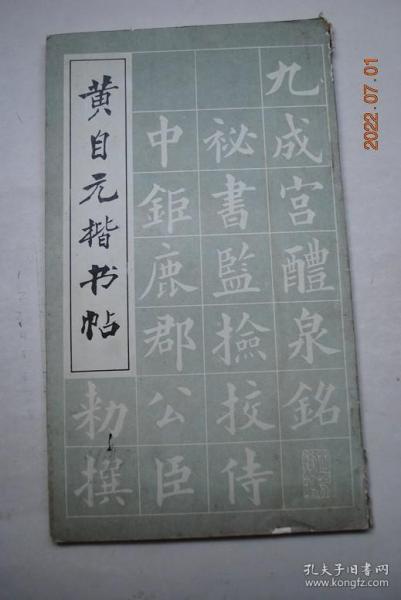 黄自元楷书帖
九成宫醴泉銘
祕書監撿挍侍
中鉅鹿郡公臣
勅撰
2022.07.01
孔夫子旧书网
www.kongfz.com